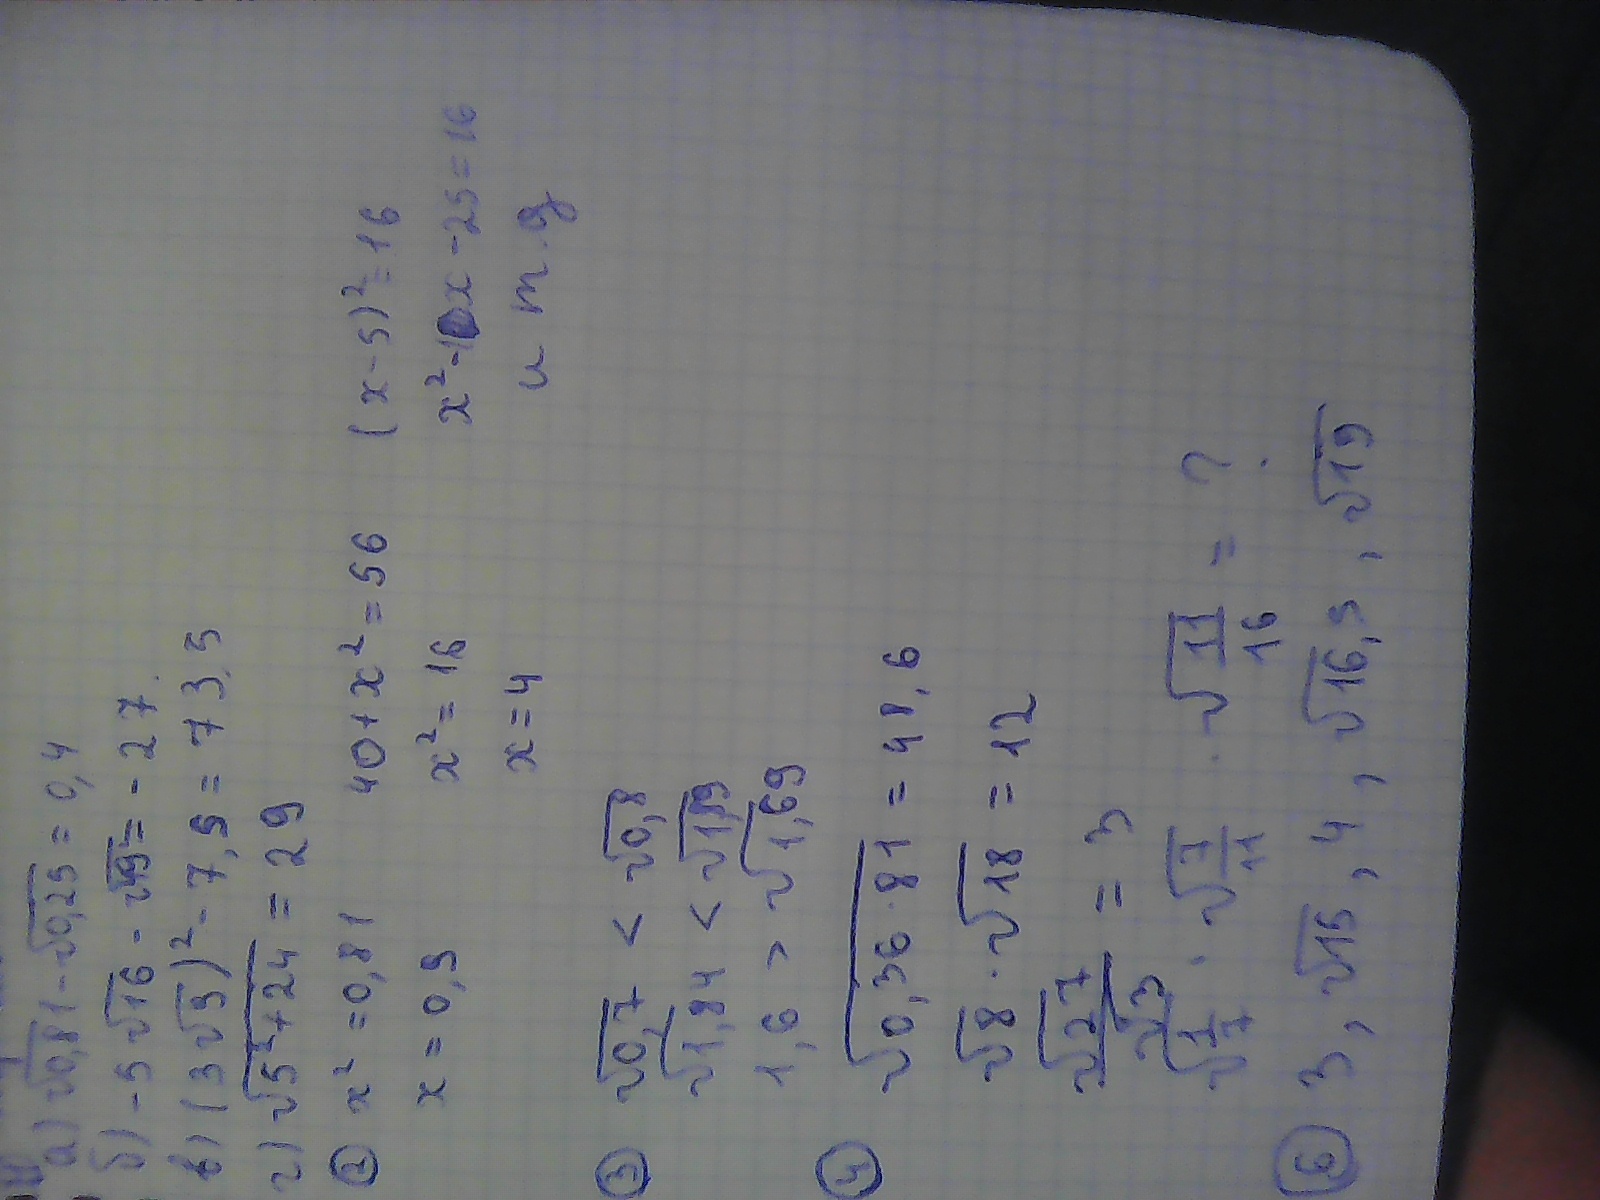 а) √0,81 - √0,25 = 0,4
б) -5√16 - √49 = -27.
в) (3√9)² - 7,5 = 73,5
г) √5²+24 = 29
② x² = 0,81 40+x² = 56 (x-5)² = 16
x = 0,9 x² = 16 x²-10x-25=16
x=4 и т.д
③ √0,7 < √0,8
√1,84 < √1,89
1,6 > √1,69
④ √0,36·81 = 48,6
√8 · √18 = 12
√27/√3 = 3
√1/7 · √7/11 · √11/16 = ?
⑥ 3, √15, 4, √16,5, √19